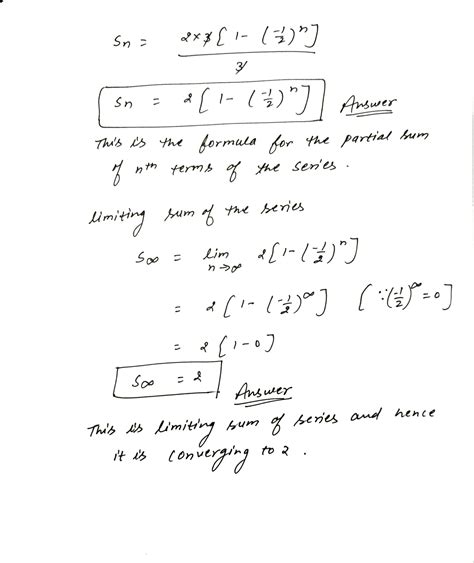 Sn = 2×3[1-(-1/2)^n]
3
Sn = 2[1-(-1/2)^n] Answer
This is the formula for the partial sum
of nth terms of the series.
limiting sum of the series
S∞ = lim n→∞ 2[1-(-1/2)^n]
= 2[1-(-1/2)^∞] [∵(-1/2)^∞=0]
= 2[1-0]
S∞ = 2 Answer
This is limiting sum of series and hence
it is converging to 2.